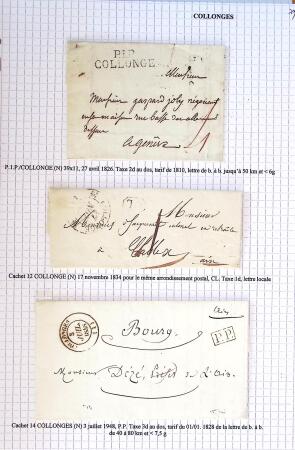 COLLONGES
P.I.P.
COLLONGE
Monsieur
Monsieur gaspard joly négociant
a genève
1
P.I.P./COLLONGE (N) 39x11, 27 avril 1826. Taxe 2d au dos, tarif de 1810, lettre de b. à b. jusqu'à 50 km et < 6g
Monsieur
Monsieur
en retraite
ain
Cachet 12 COLLONGE (N) 17 novembre 1834 pour le même arrondissement postal, CL. Taxe 1d, lettre locale
COLLONGES
3
JUIL
(1)
Bourg
P.P.
Monsieur Dézé, Préfet de L'Ain.
Cachet 14 COLLONGES (N) 3 juillet 1948, P.P. Taxe 3d au dos, tarif du 01/01. 1828 de la lettre de b. à b.
de 40 à 80 km et < 7,5 g